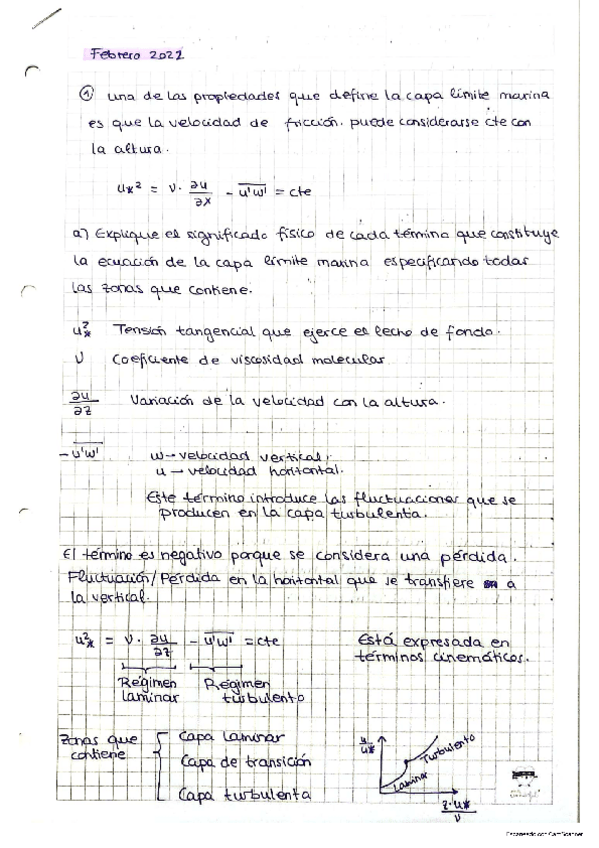 Febrero 2022
① una de las propiedades que define la capa límite marina
es que la velocidad de fricción. puede considerarse cte con
la altura.
u*² = ν · ∂u/∂x - u'w' = cte
a) Explique el significado físico de cada término que constituye
la ecuación de la capa límite marina especificando todas
las zonas que contiene.
u*² Tensión tangencial que ejerce el lecho de fondo.
ν Coeficiente de viscosidad molecular
∂u/∂z Variación de la velocidad con la altura.
- u'w' w → velocidad vertical.
u → velocidad horizontal.
Este término introduce las fluctuaciones que se
producen en la capa turbulenta.
El término es negativo porque se considera una pérdida.
Fluctuación/Pérdida en la horizontal que se transfiere a
la vertical.
u*² = ν · ∂u/∂z - u'w' = cte Está expresada en
términos cinemáticos.
Régimen laminar Régimen turbulento
Zonas que contiene
Capa laminar
Capa de transición
Capa turbulenta
u/u*
Laminar
Turbulento
z·u*/ν
Escaneado con CamScanner